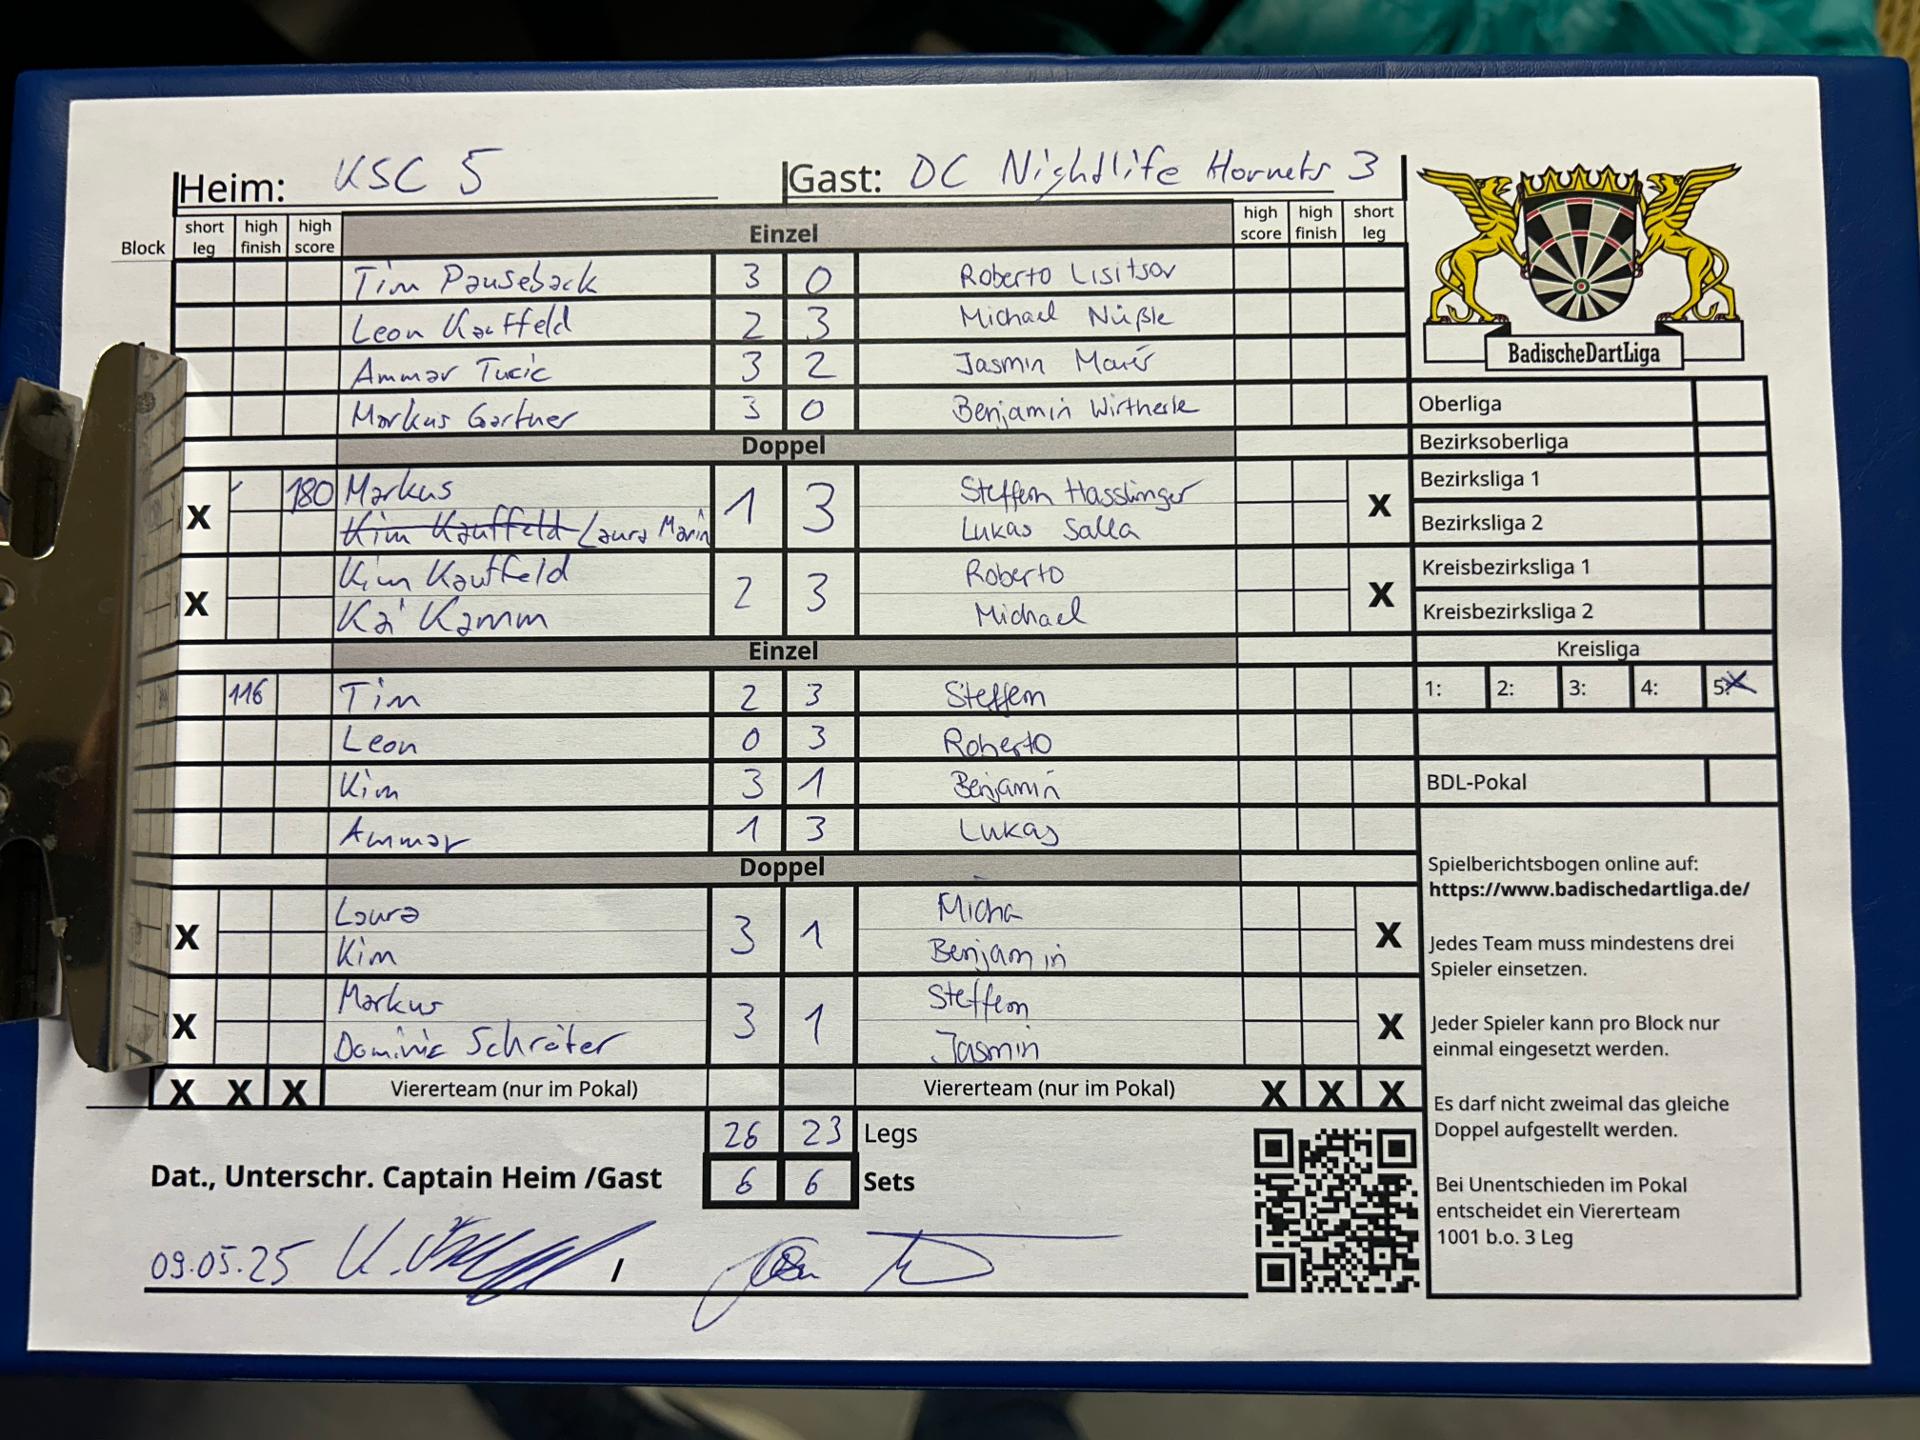 Heim: KSC 5 Gast: DC Nightlife Hornets 3
Block short leg high finish high score Einzel high score high finish short leg
Tim Pauseback 3 0 Roberto Lisitsov
Leon Kauffeld 2 3 Michael Nüßle
Ammar Tucic 3 2 Jasmin
Markus Gartner 3 0 Benjamin Wirtherle
Doppel
X 180 Markus 1 3 Steffen Hasslinger X
Kim Kauffeld Laura Marin Lukas Salla
X Kim Kauffeld 2 3 Roberto X
Kai Kamm Michael
Einzel
116 Tim 2 3 Steffen
Leon 0 3 Roberto
Kim 3 1 Benjamin
Ammar 1 3 Lukas
Doppel
X Laura 3 1 Micha X
Kim Benjamin
X Markus 3 1 Steffen X
Dominic Schräter Jasmin
X X X Viererteam (nur im Pokal) Viererteam (nur im Pokal) X X X
26 23 Legs
Dat., Unterschr. Captain Heim /Gast 6 6 Sets
09.05.25 /
BadischeDartLiga
Oberliga
Bezirksoberliga
Bezirksliga 1
Bezirksliga 2
Kreisbezirksliga 1
Kreisbezirksliga 2
Kreisliga
1: 2: 3: 4: 5: X
BDL-Pokal
Spielberichtsbogen online auf:
https://www.badischedartliga.de/
Jedes Team muss mindestens drei
Spieler einsetzen.
Jeder Spieler kann pro Block nur
einmal eingesetzt werden.
Es darf nicht zweimal das gleiche
Doppel aufgestellt werden.
Bei Unentschieden im Pokal
entscheidet ein Viererteam
1001 b.o. 3 Leg